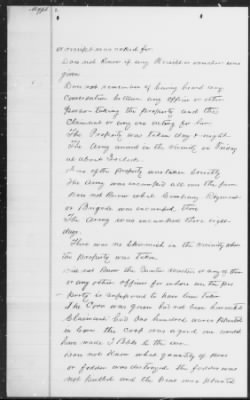 a receipt was asked for
Does not know if any Receipt or voucher was
given
Does not remember of having heard any
conversation between any officer or other
person taking the property and the
Claimant or any one acting for him
The Property was taken day & night
The Army in the vicinity on Friday
at about
of the property was taken secretly
The Army was encamped all on the farm
Does not know what Company Regiment
or Brigade was encamped there
The Army was encamped there eight
days.
There was no skirmish in the vicinity when
the property was taken
Did not know the Quarter Master or any of them
or any other officer for whose use the pro
perty is supposed to have been taken
The Corn was green but not been harvested
Claimant had One hundred acres planted
in Corn the crop was a good one would
have made Bbls to the acre
Does not know what quantity of
or fodder was destroyed the fodder was
not pulled and the was planted